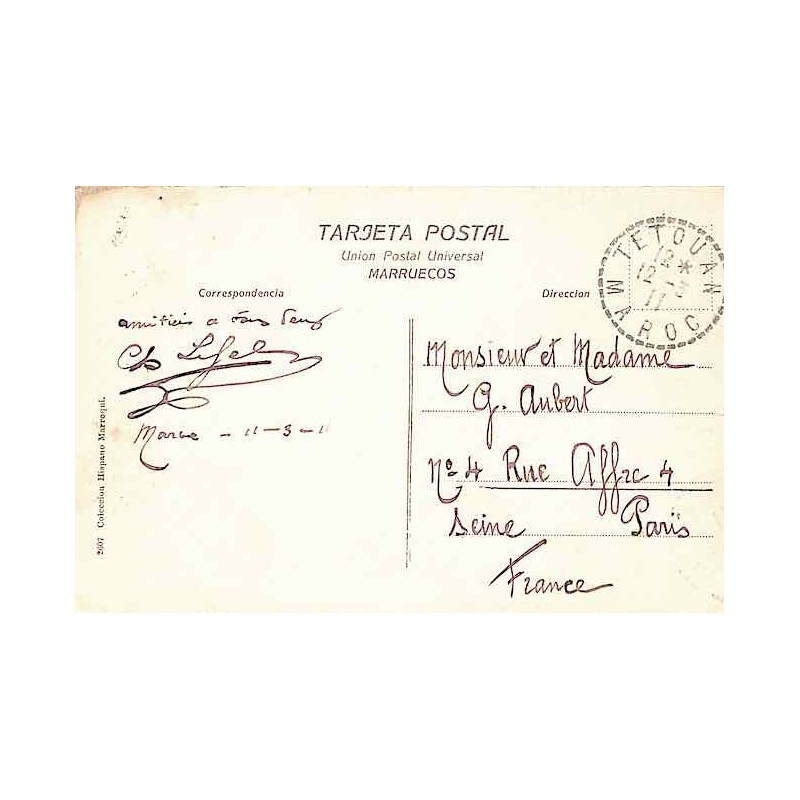 TARJETA POSTAL
Union Postal Universal
MARRUECOS
Correspondencia
Direccion
TETOUAN
12 *
12 - 3
11
MAROC
amitiés a
Ch
Maroc - 11 - 3 - 1
Monsieur et Madame
G. Aubert
No 4 Rue Affre 4
Seine Paris
France
2607 Coleccion Hispano Marroqui.